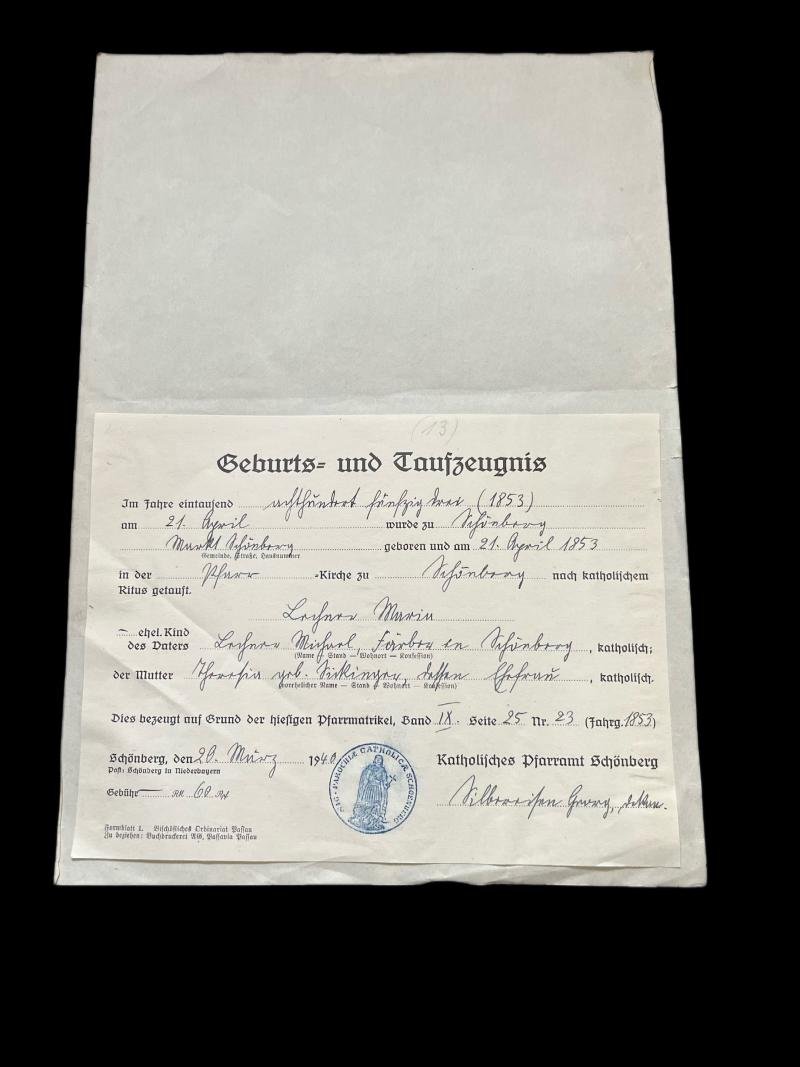 (13)
Geburts- und Taufzeugnis
Im Jahre eintausend achthundert fünfzig drei (1853)
am 21. April wurde zu Schönberg
Markt Schönberg geboren und am 21. April 1853
Gemeinde, Straße, Hausnummer
in der Pfarr -Kirche zu Schönberg nach katholischem
Ritus getauft.
Lechner Maria
— ehel. Kind
des Vaters Lechner Michael, Färber in Schönberg, katholisch;
(Name — Stand — Wohnort — Konfession)
der Mutter Theresia geb. Sickinger, dessen Ehefrau, katholisch.
(vorehelicher Name — Stand — Wohnort — Konfession)
Dies bezeugt auf Grund der hiesigen Pfarrmatrikel, Band IX. Seite 25 Nr. 23 (Jahrg. 1853)
Schönberg, den 20. März 1940
Post: Schönberg in Niederbayern
Katholisches Pfarramt Schönberg
Gebühr — RM 60 Rpf
SIG. PAROCHIÆ CATHOLICÆ SCHOENBERG
Silbereisen Georg, Dekan.
Formblatt 1. Bischöfliches Ordinariat Passau
Zu beziehen: Buchdruckerei AG. Passavia Passau